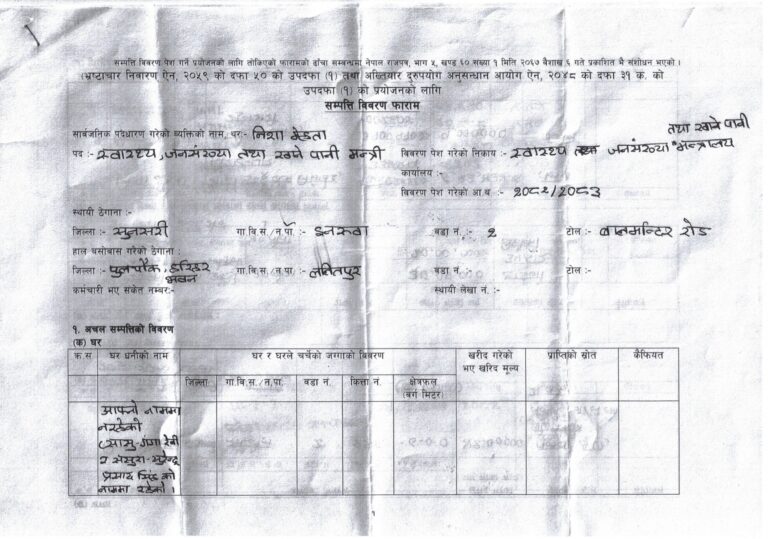 सम्पत्ति विवरण पेश गर्ने प्रयोजनको लागि तोकिएको फारामको ढाँचा सम्बन्धमा नेपाल राजपत्र, भाग ५, खण्ड ६० संख्या १ मिति २०६७ वैशाख ६ गते प्रकाशित मै संशोधन भएको ।
(भ्रष्टाचार निवारण ऐन, २०५९ को दफा ५० को उपदफा (१) तथा अख्तियार दुरुपयोग अनुसन्धान आयोग ऐन, २०४८ को दफा ३१ क. को
उपदफा (१) को प्रयोजनको लागि
सम्पत्ति विवरण फाराम
सार्वजनिक पदधारण गरेको व्यक्तिको नाम, थर:- निशा मेहता
पद :- स्वास्थ्य, जनसंख्या तथा खाने पानी मन्त्री
विवरण पेश गरेको निकाय :- स्वास्थ्य जनसंख्या तथा खाने पानी मन्त्रालय
कार्यालय :-
विवरण पेश गरेको आ.ब. :- २०८२/२०८३
स्थायी ठेगाना :-
जिल्ला :- सुनसरी गा.वि.स./न.पा. :- इनरुवा वडा नं. :- २ टोल :- रोड
हाल बसोबास गरेको ठेगाना :
जिल्ला :- पुलचोक, हरिहर भवन गा.वि.स./न.पा. :- ललितपुर वडा नं. :- टोल :-
कर्मचारी भए संकेत नम्बर:- स्थायी लेखा नं. :-
१. अचल सम्पत्तिको विवरण
(क) घर
क्र.स घर धनीको नाम घर र घरले चर्चेको जग्गाको विवरण खरीद गरेको भए खरिद मूल्य प्राप्तिको स्रोत कैफियत
जिल्ला गा.वि.स./न.पा. वडा नं. कित्ता नं. क्षेत्रफल (वर्ग मिटर)
आफ्नो नाममा
नरहेको
(सासु-गंगा देवी
र ससुरा-सुरेन्द्र
प्रसाद सिंह को
नाममा रहेको ।
१